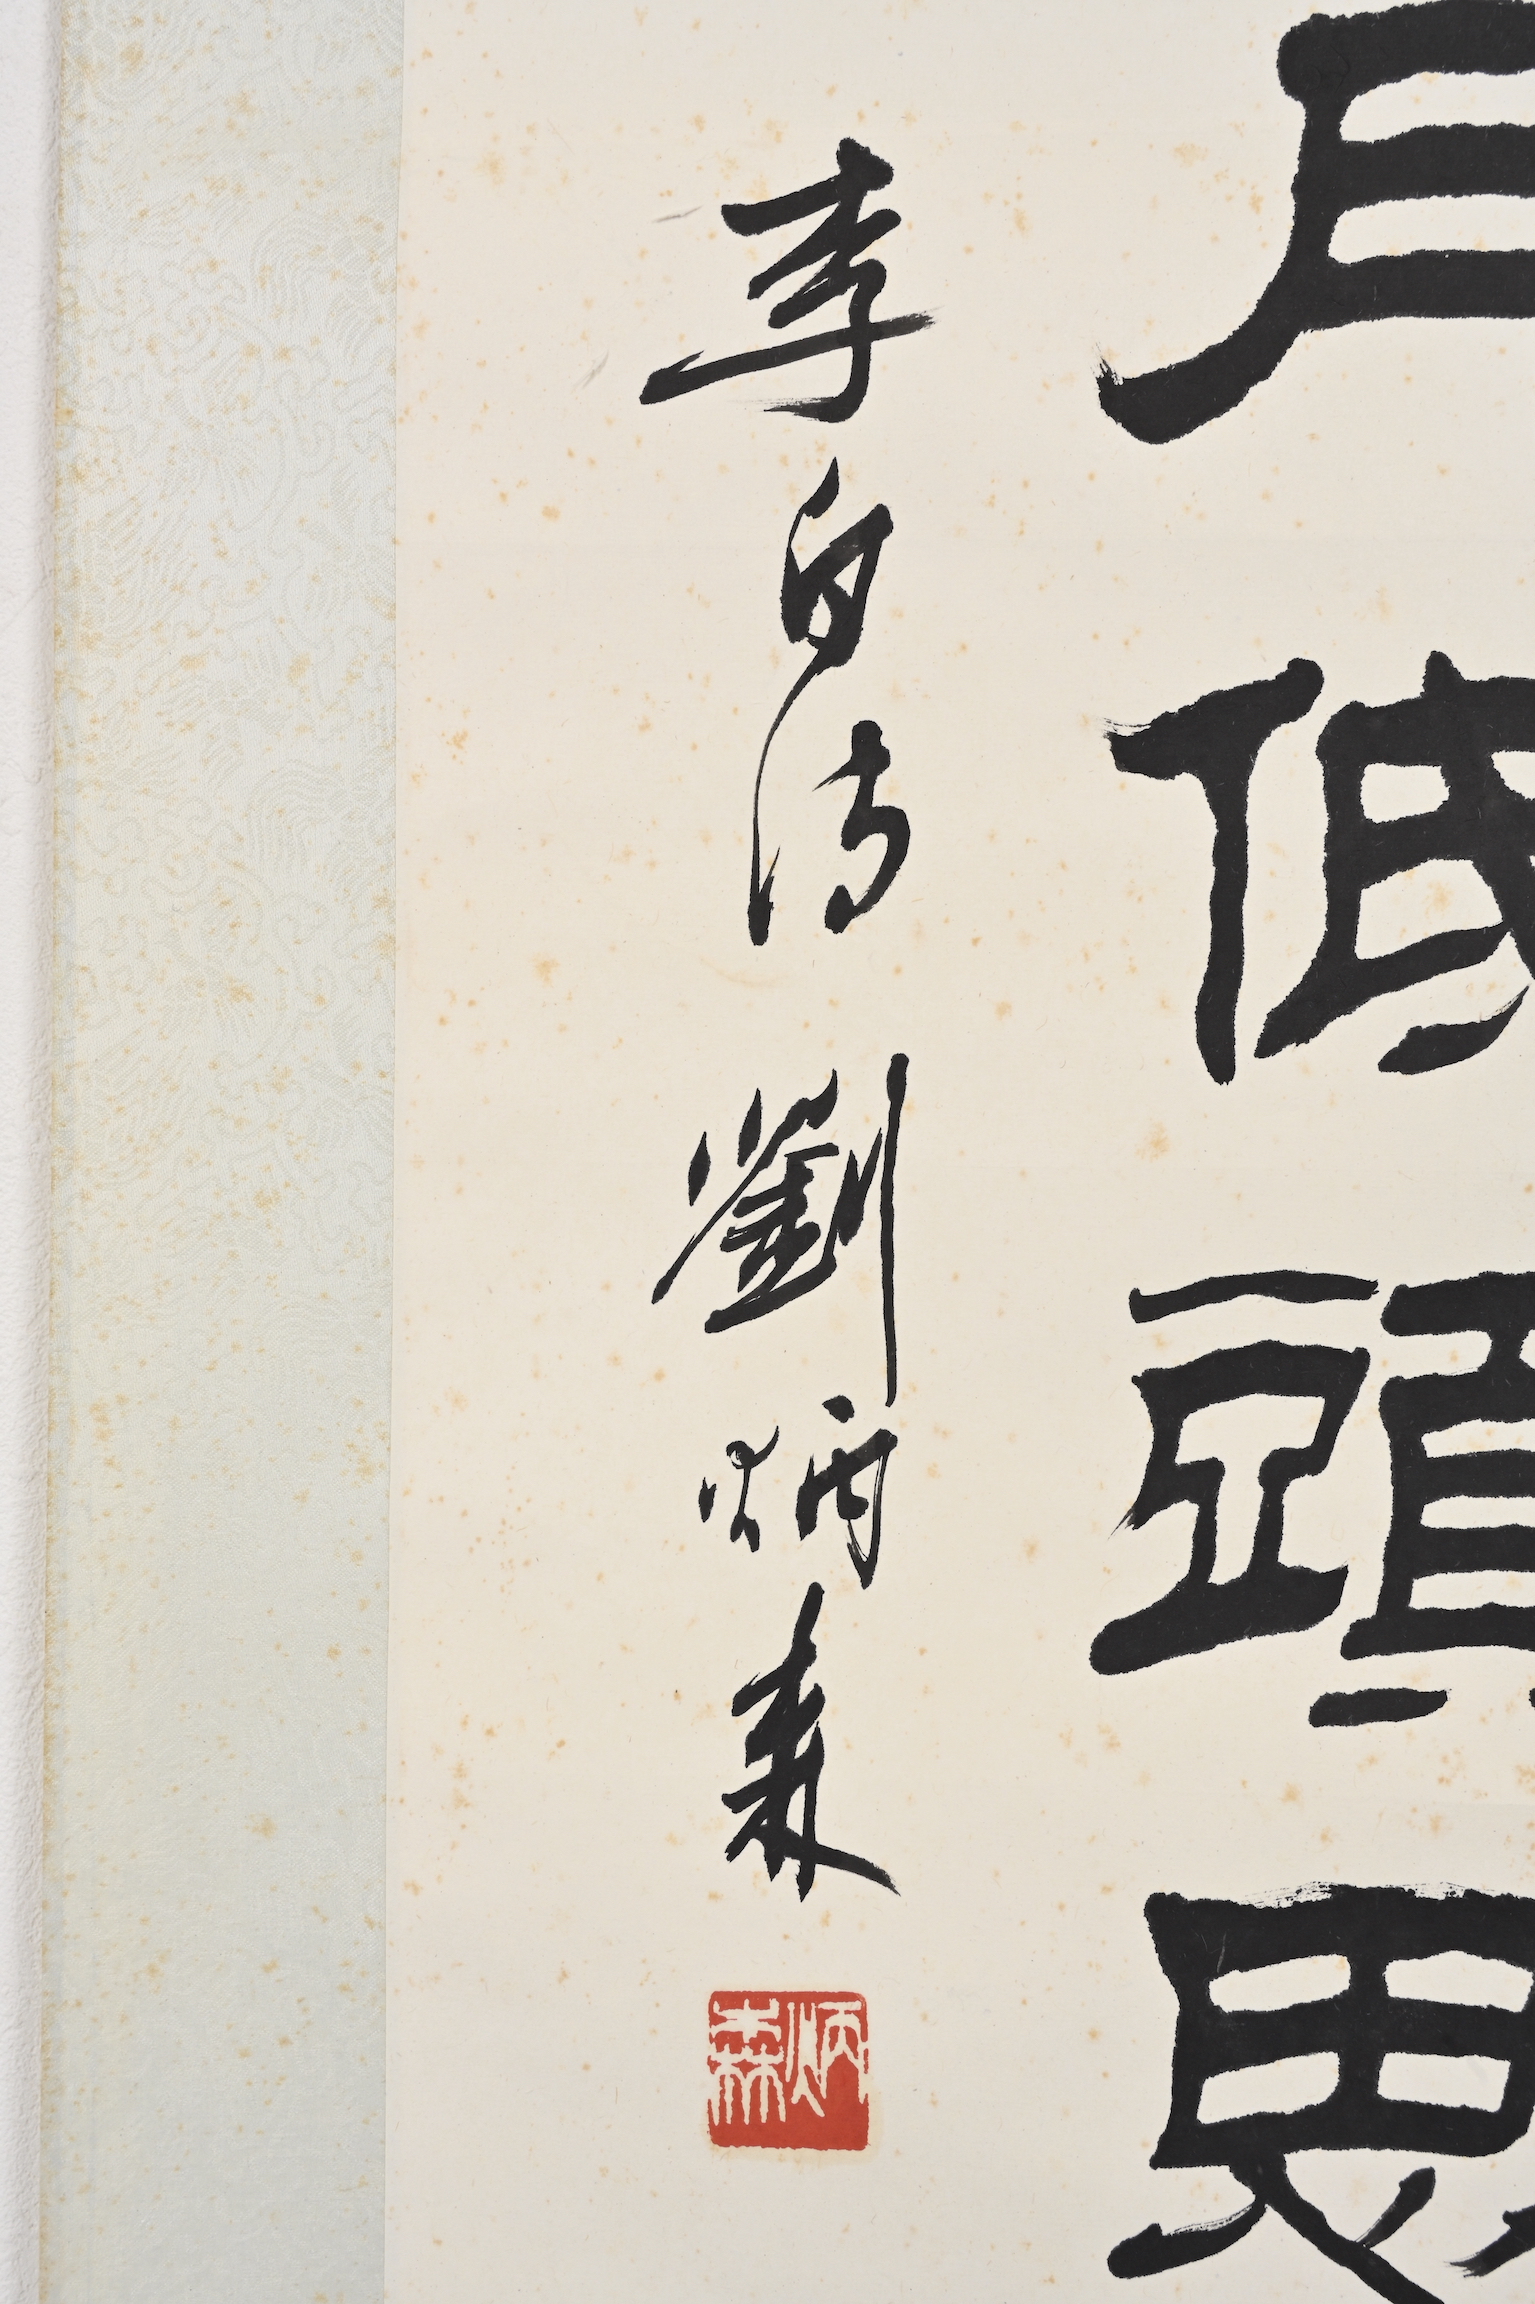 月低頭思
李白詩 劉炳森
炳森